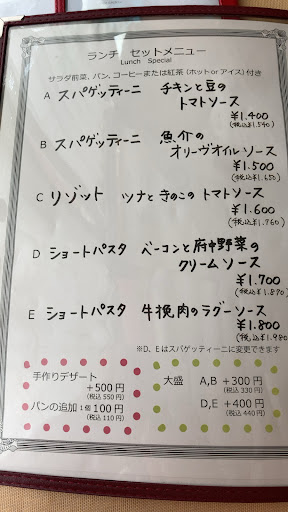 ランチ　セットメニュー
Lunch Special
サラダ前菜、パン、コーヒーまたは紅茶（ホット or アイス）付き
A スパゲッティーニ　チキンと豆の
トマトソース
¥1.400
(税込¥1.540)
B スパゲッティーニ　魚介の
オリーヴオイルソース
¥1.500
(税込¥1.650)
C リゾット　ツナときのこのトマトソース
¥1.600
(税込¥1.760)
D ショートパスタ　ベーコンと府中野菜の
クリームソース
¥1.700
(税込¥1.870)
E ショートパスタ　牛挽肉のラグーソース
¥1.800
(税込¥1.980)
※D、Eはスパゲッティーニに変更できます
手作りデザート
＋500円
(税込 550円)
パンの追加 1個 100円
(税込 110円)
大盛　A,B ＋300円
(税込 330円)
D,E ＋400円
(税込 440円)